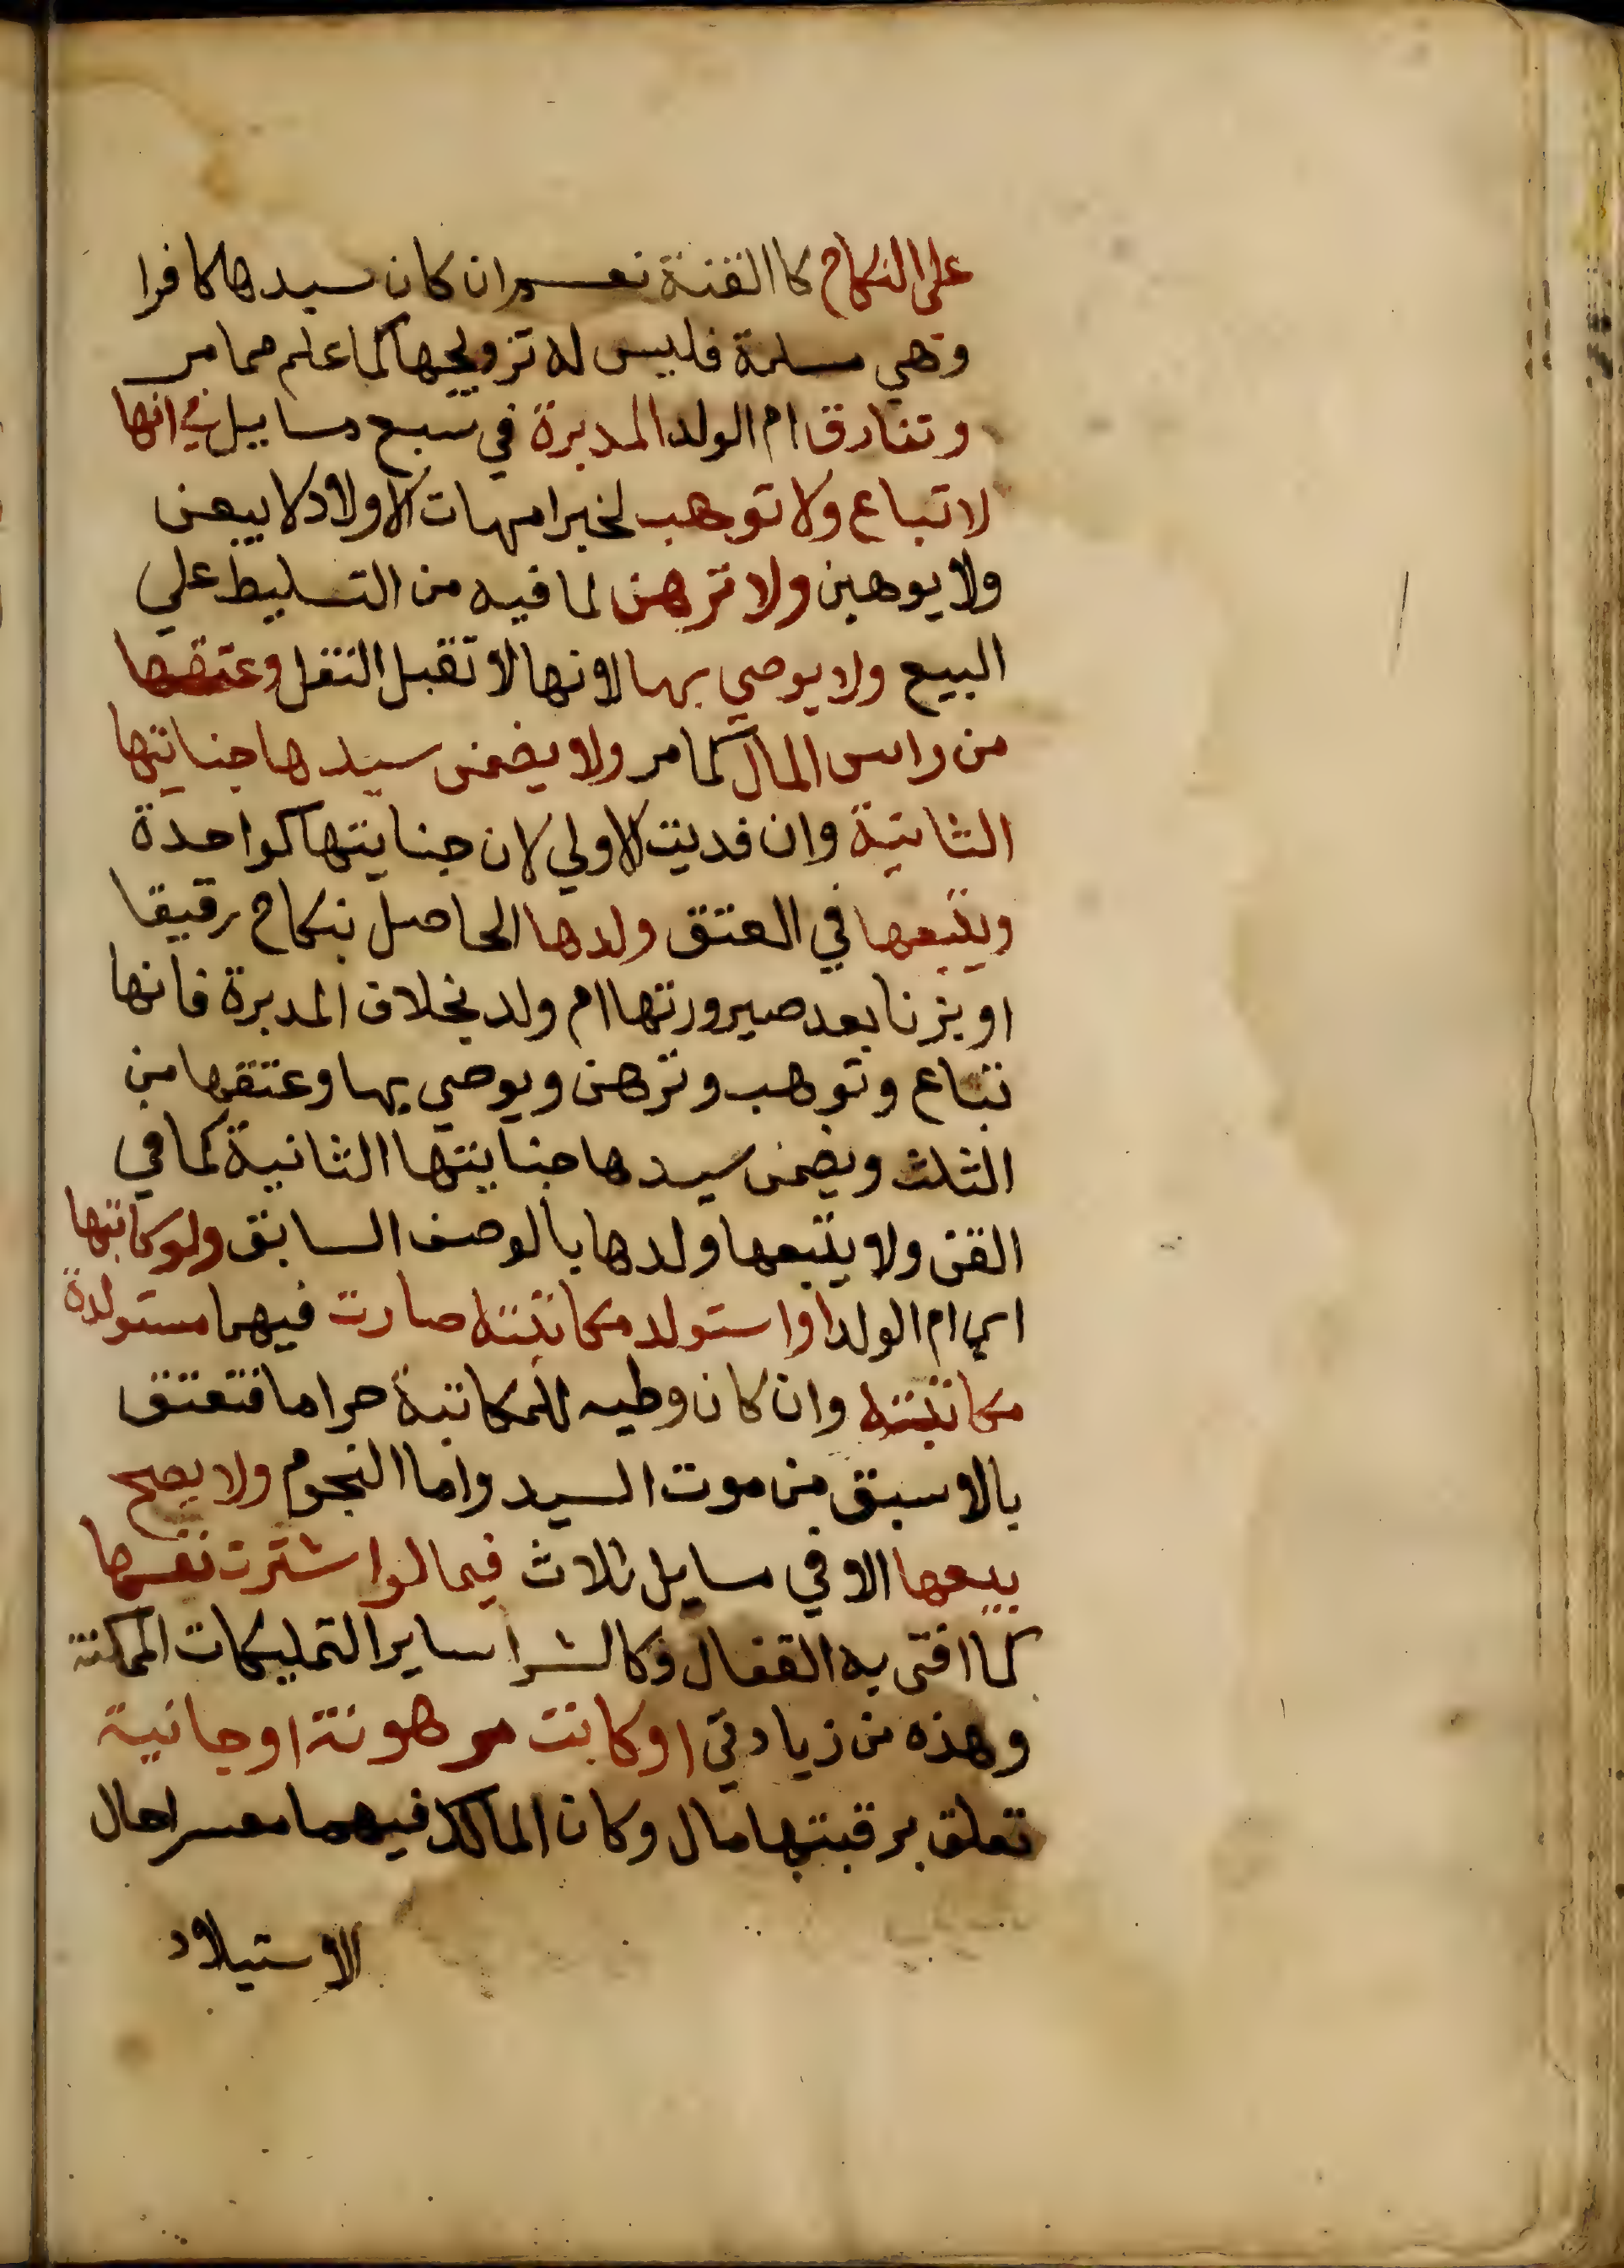 على النكاح كالقنة نعم ان كان سيدها كافرا
وهي مسلمة فليس له تزويجها كما علم مما مر
وتفارق ام الولد المدبرة في سبع مسايل في انها
لا تباع ولا توهب لخبر امهات الاولاد لا يبعن
ولا يوهبن ولا ترهن لما فيه من التسليط علي
البيع ولا يوصي بها لانها لا تقبل النقل وعتقها
من راس المال كما مر ولا يضمن سيدها جنايتها
الثانية وان فديت الاولي لان جنايتها كواحدة
ويتبعها في العتق ولدها الحاصل بنكاح رقيقا
او بزنا بعد صيرورتها ام ولد بخلاف المدبرة فانها
تباع وتوهب وترهن ويوصي بها وعتقها من
الثلث ويضمن سيدها جنايتها الثانية كما في
القن ولا يتبعها ولدها بالوصف السابق ولو كاتبها
اي ام الولد او استولد مكاتبته صارت فيهما مستولدة
مكاتبته وان كان وطيه للمكاتبة حراما فتعتق
بالاسبق من موت السيد واما النجوم ولا يصح
بيعها الا في مسايل ثلاث فيما لو اشترت نفسها
كما افتى به القفال وكالشرا ساير التمليكات الممكنة
وهذه من زيادتي او كانت مرهونة او جانية
تعلق برقبتها مال وكان المالك فيهما معسرا حال
الاستيلاد